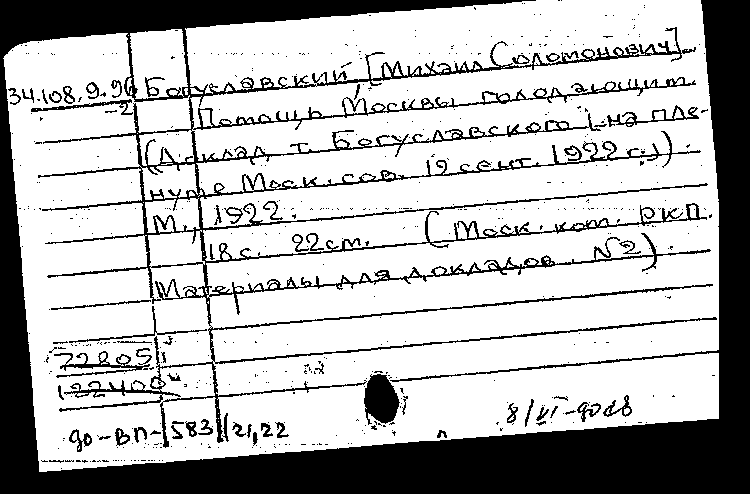 34.108.9.96 Богуславский, [Михаил Соломонович].
-2 Помощь Москвы голодающим.
(Доклад т. Богуславского [на пле-
нуме Моск. сов. 12 сент. 1922 г.]).
М., 1922.
18 с. 22 см. (Моск. ком. РКП.
Материалы для докладов. №2).
72805
122400
до-вп-583 21,22